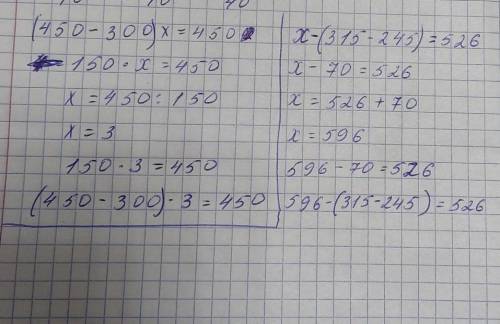 (450-300)x=450
150·x=450
x=450:150
x=3
150·3=450
(450-300)·3=450
x-(315-245)=526
x-70=526
x=526+70
x=596
596-70=526
596-(315-245)=526